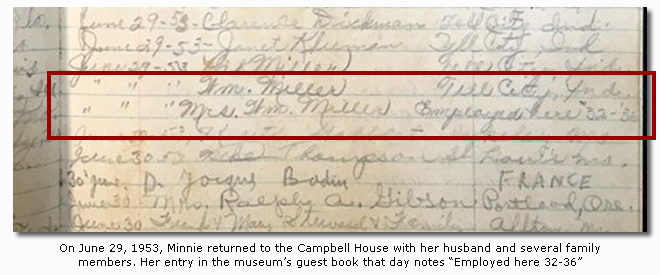 June 29-53- Clarence Dickman Tell City, Ind.
June 29-53- Janet Kleeman Tell City, Ind
June 29-53 Miller Tell City, Ind
" " " Wm. Miller Tell City, Ind.
" " " Mrs. Wm. Miller Employed here '32-'36
June 30 53 Thompson St. Louis Mo.
30 June. D. Jorgus Bodin FRANCE
June 30 Mrs. Ralph A. Gibson Portland, Ore.
June 30 Frank & Mary & Family Alton
On June 29, 1953, Minnie returned to the Campbell House with her husband and several family
members. Her entry in the museum's guest book that day notes “Employed here 32-36”